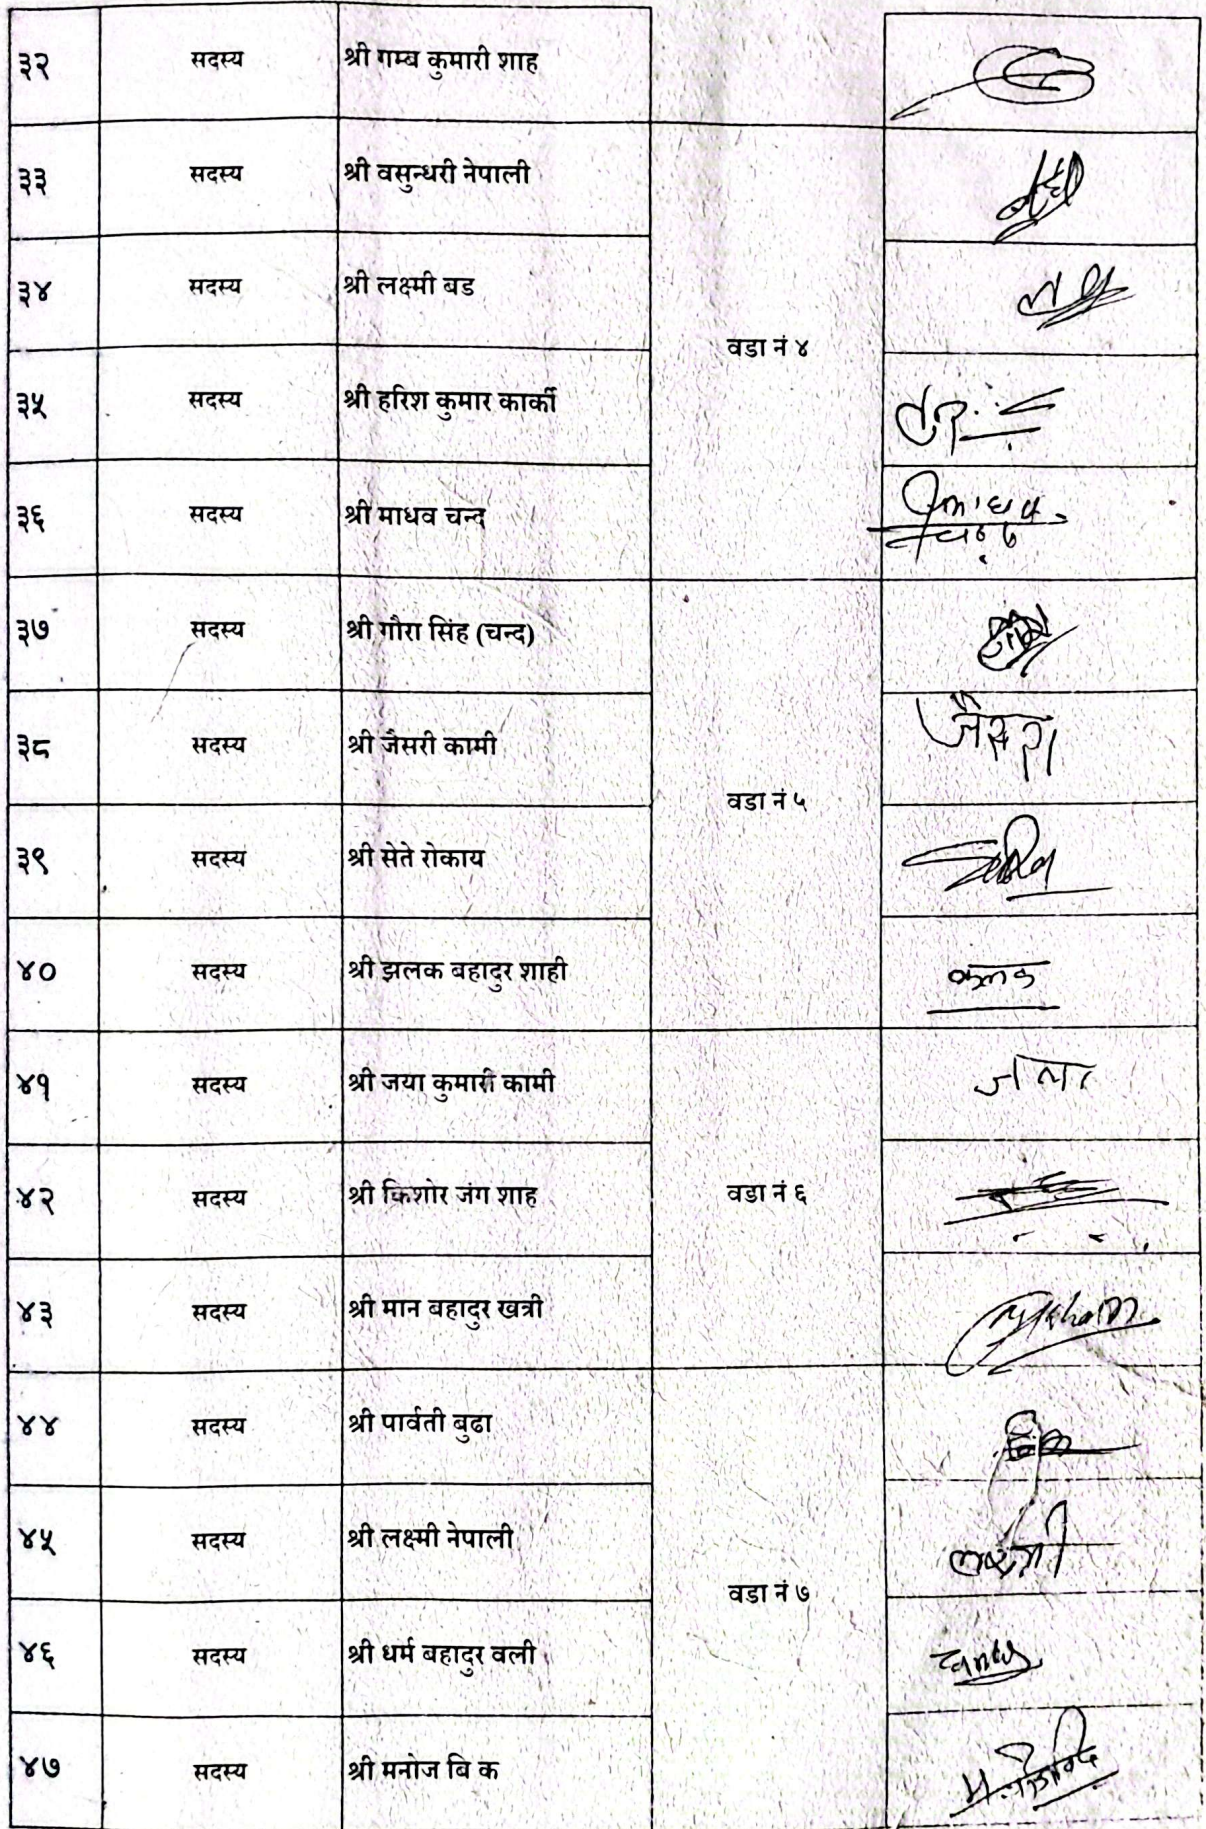 ३२ सदस्य श्री गम्ब कुमारी शाह
३३ सदस्य श्री वसुन्धरी नेपाली
३४ सदस्य श्री लक्ष्मी बड
वडा नं ४
३५ सदस्य श्री हरिश कुमार कार्की
३६ सदस्य श्री माधव चन्द माधव
चन्द
३७ सदस्य श्री गौरा सिंह (चन्द)
३८ सदस्य श्री जैसरी कामी जैसरी
वडा नं ५
३९ सदस्य श्री सेते रोकाय
४० सदस्य श्री झलक बहादुर शाही
४१ सदस्य श्री जया कुमारी कामी
४२ सदस्य श्री किशोर जंग शाह वडा नं ६
४३ सदस्य श्री मान बहादुर खत्री
४४ सदस्य श्री पार्वती बुढा
४५ सदस्य श्री लक्ष्मी नेपाली लक्ष्मी
वडा नं ७
४६ सदस्य श्री धर्म बहादुर वली
४७ सदस्य श्री मनोज बि क